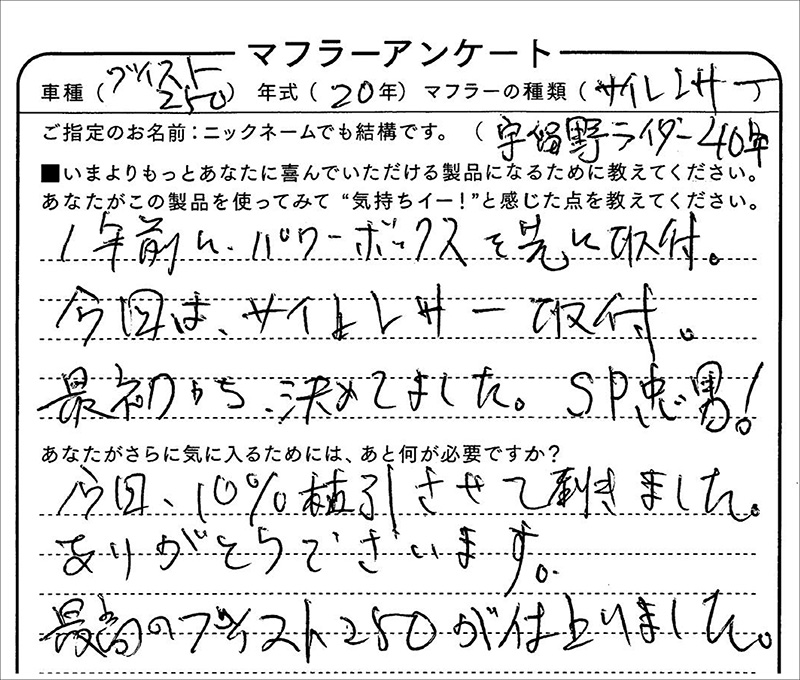 マフラーアンケート
車種(ヴイスト250) 年式(20年) マフラーの種類(サイレンサー)
ご指定のお名前:ニックネームでも結構です。(宇留野ライダー40年
■いまよりもっとあなたに喜んでいただける製品になるために教えてください。
あなたがこの製品を使ってみて“気持ちイー!”と感じた点を教えてください。
1年前に、パワーボックスを先に取付。
今回は、サイレンサー取付。
最初から、決めてました。SP忠男!
あなたがさらに気に入るためには、あと何が必要ですか?
今回、10%値引させて頂きました。
ありがとうございます。
最高のブイスト250が仕上りました。